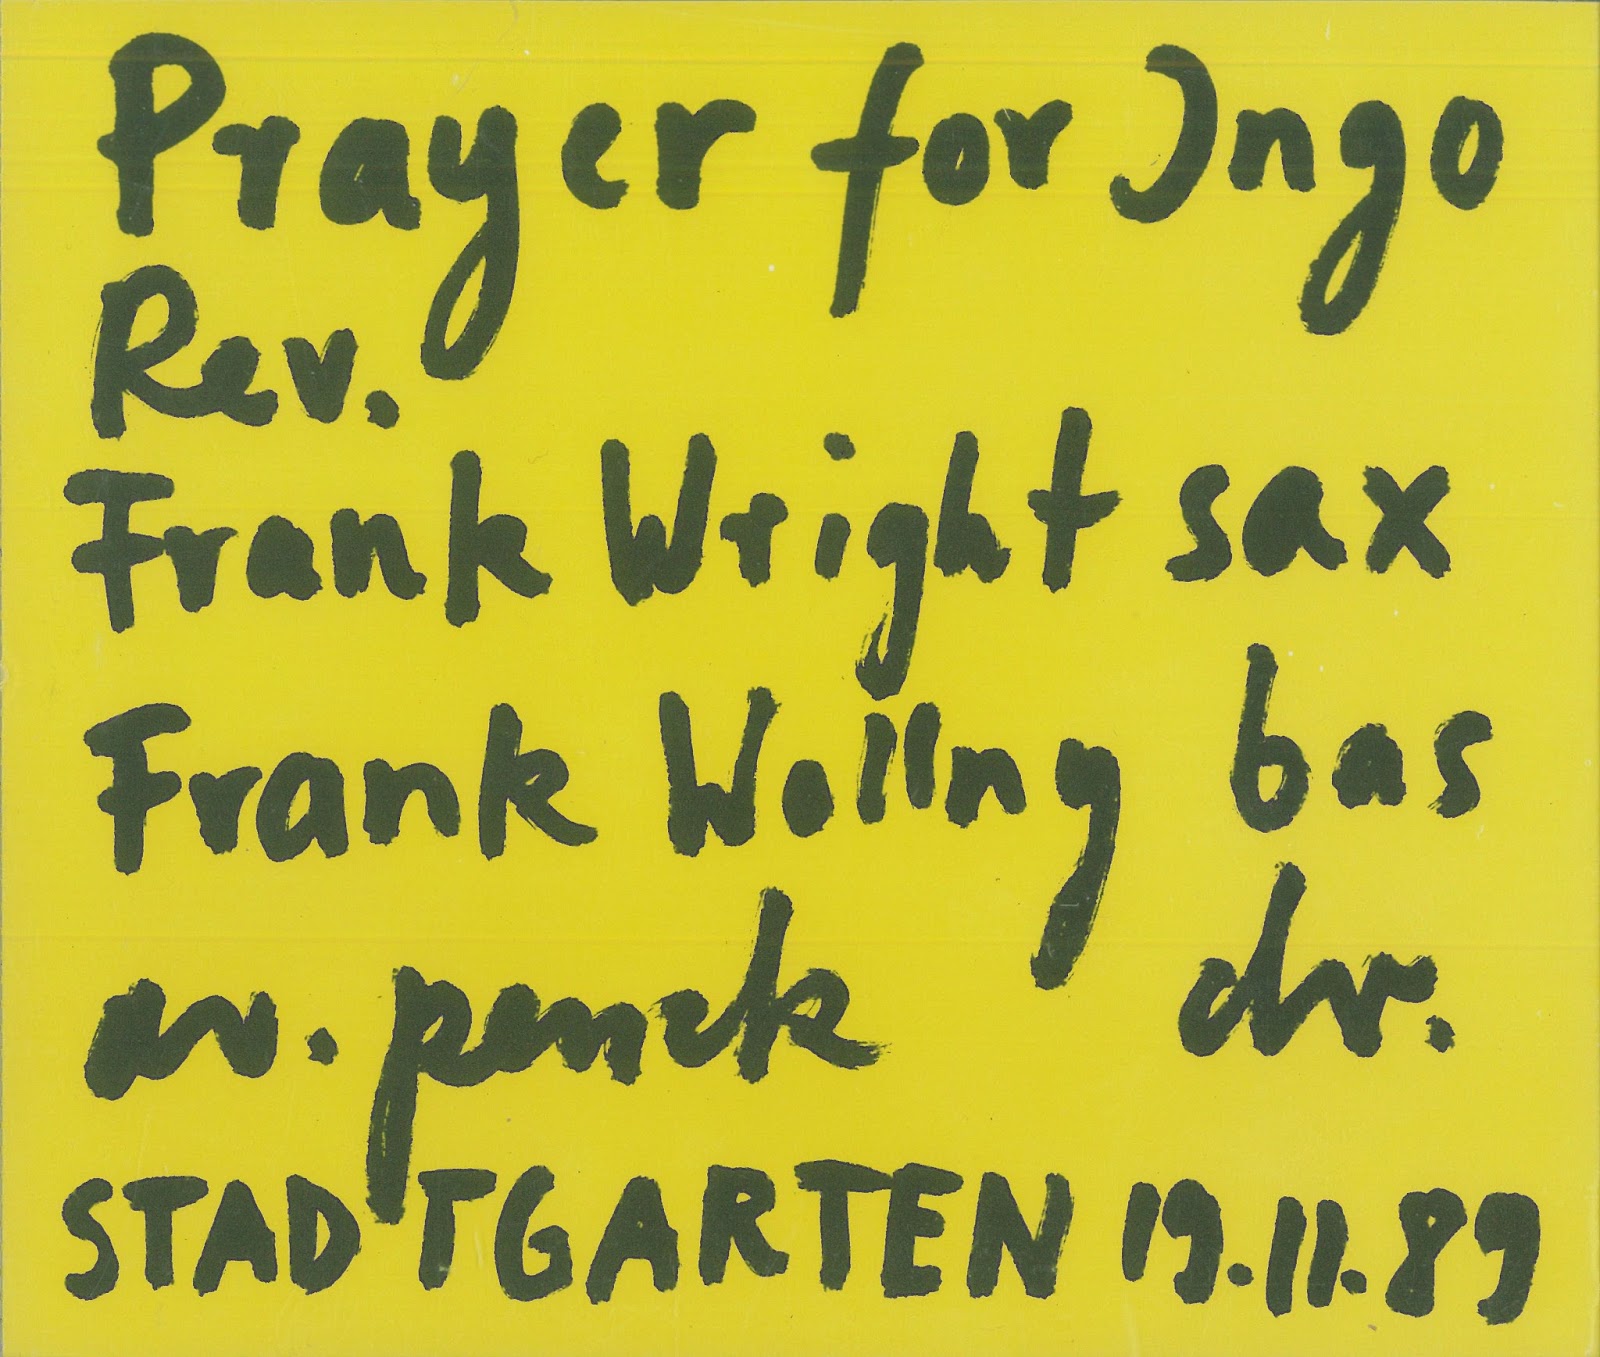 Prayer for Ingo
Rev.
Frank Wright sax
Frank Wollny bas
av. penck dr.
STADTGARTEN 19.11.89